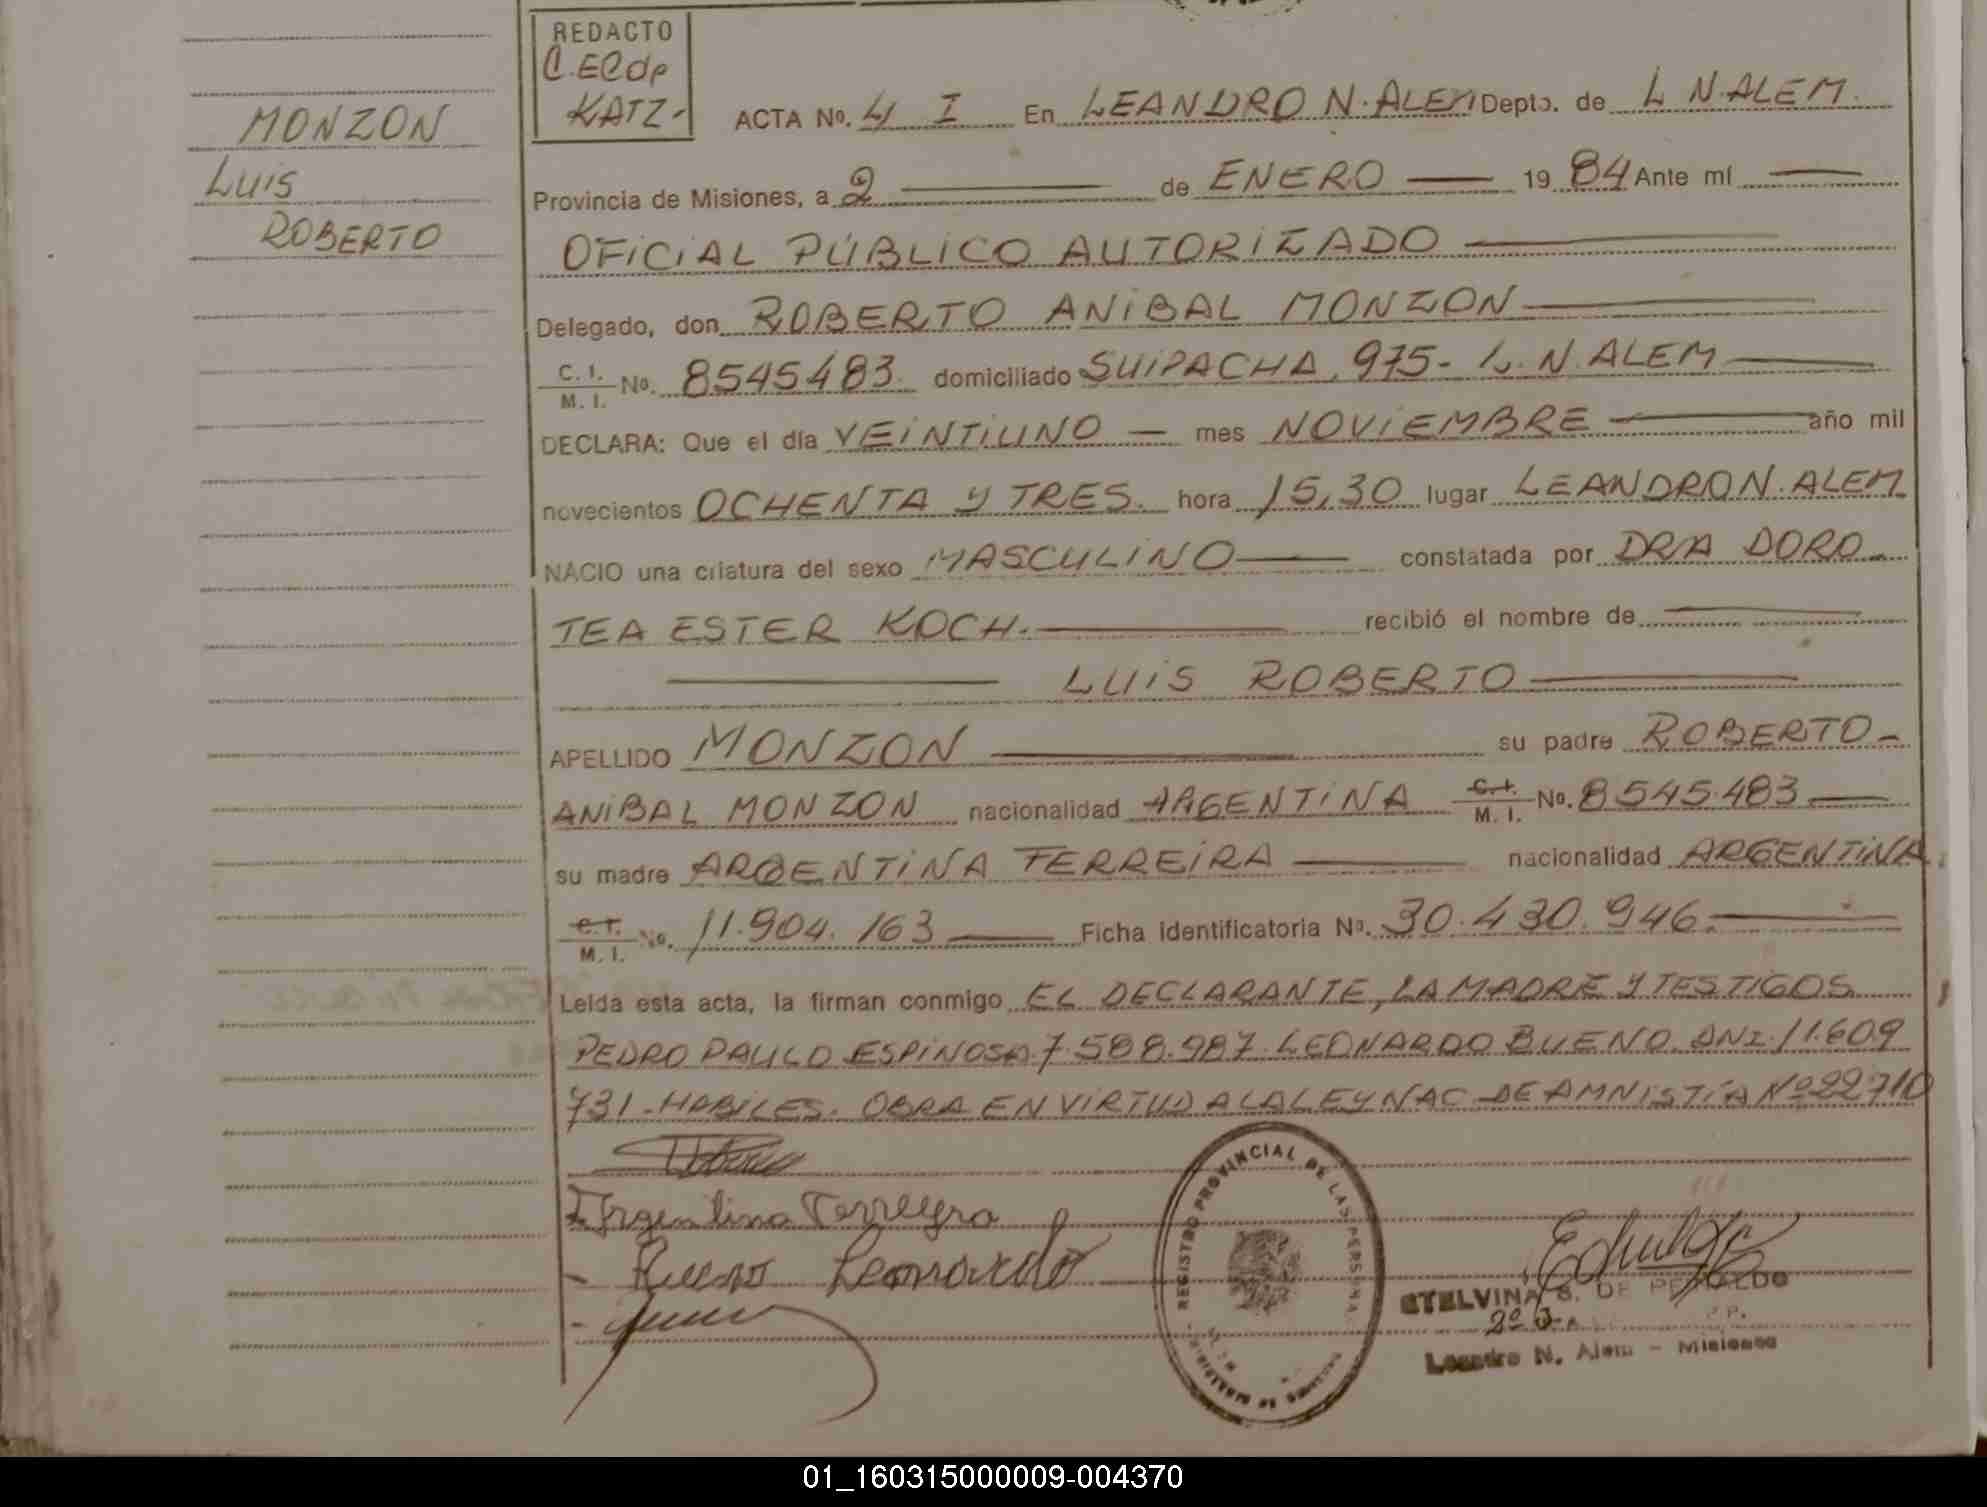 MONZON
LUIS
ROBERTO
REDACTO
KATZ-
ACTA No. 4 I En LEANDRO N. ALEM Depto. de L N. ALEM.
Provincia de Misiones, a 2 de ENERO 19 84 Ante mí
OFICIAL PÚBLICO AUTORIZADO
Delegado, don ROBERTO ANIBAL MONZON
C. I.
M. I. No. 8545483. domiciliado SUIPACHA, 975- L. N. ALEM
DECLARA: Que el día VEINTIUNO — mes NOVIEMBRE año mil
novecientos OCHENTA Y TRES. hora 15,30 lugar LEANDRO N. ALEM
NACIO una criatura del sexo MASCULINO constatada por DRA DORO-
TEA ESTER KOCH. recibió el nombre de
LUIS ROBERTO
APELLIDO MONZON su padre ROBERTO-
ANIBAL MONZON nacionalidad ARGENTINA C. I.
M. I. No. 8545.483
su madre ARGENTINA FERREIRA nacionalidad ARGENTINA
C. I.
M. I. No. 11.904.163 Ficha identificatoria No. 30.430.946.
Leída esta acta, la firman conmigo EL DECLARANTE, LA MADRE Y TESTIGOS
PEDRO PAULO ESPINOSA 7.588.987 LEONARDO BUENO DNI. 11.609
731-HABILES. OBRA EN VIRTUD A LA LEY NAC DE AMNISTÍA Nº 22710
Argentina Ferreyra
Bueno Leonardo
REGISTRO PROVINCIAL DE LAS PERSONAS
ETELVINA S. DE PERALDO
Leandro N. Alem - Misiones
01_160315000009-004370